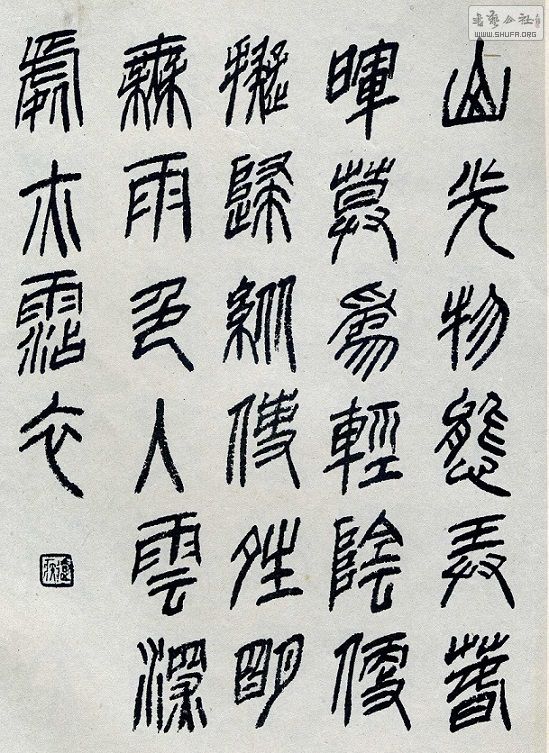 书艺公社
WWW.SHUFA.ORG
山光物態弄萅
暉莫為輕陰便
擬歸縱使夝明
無雨色入雲深
處亦霑衣